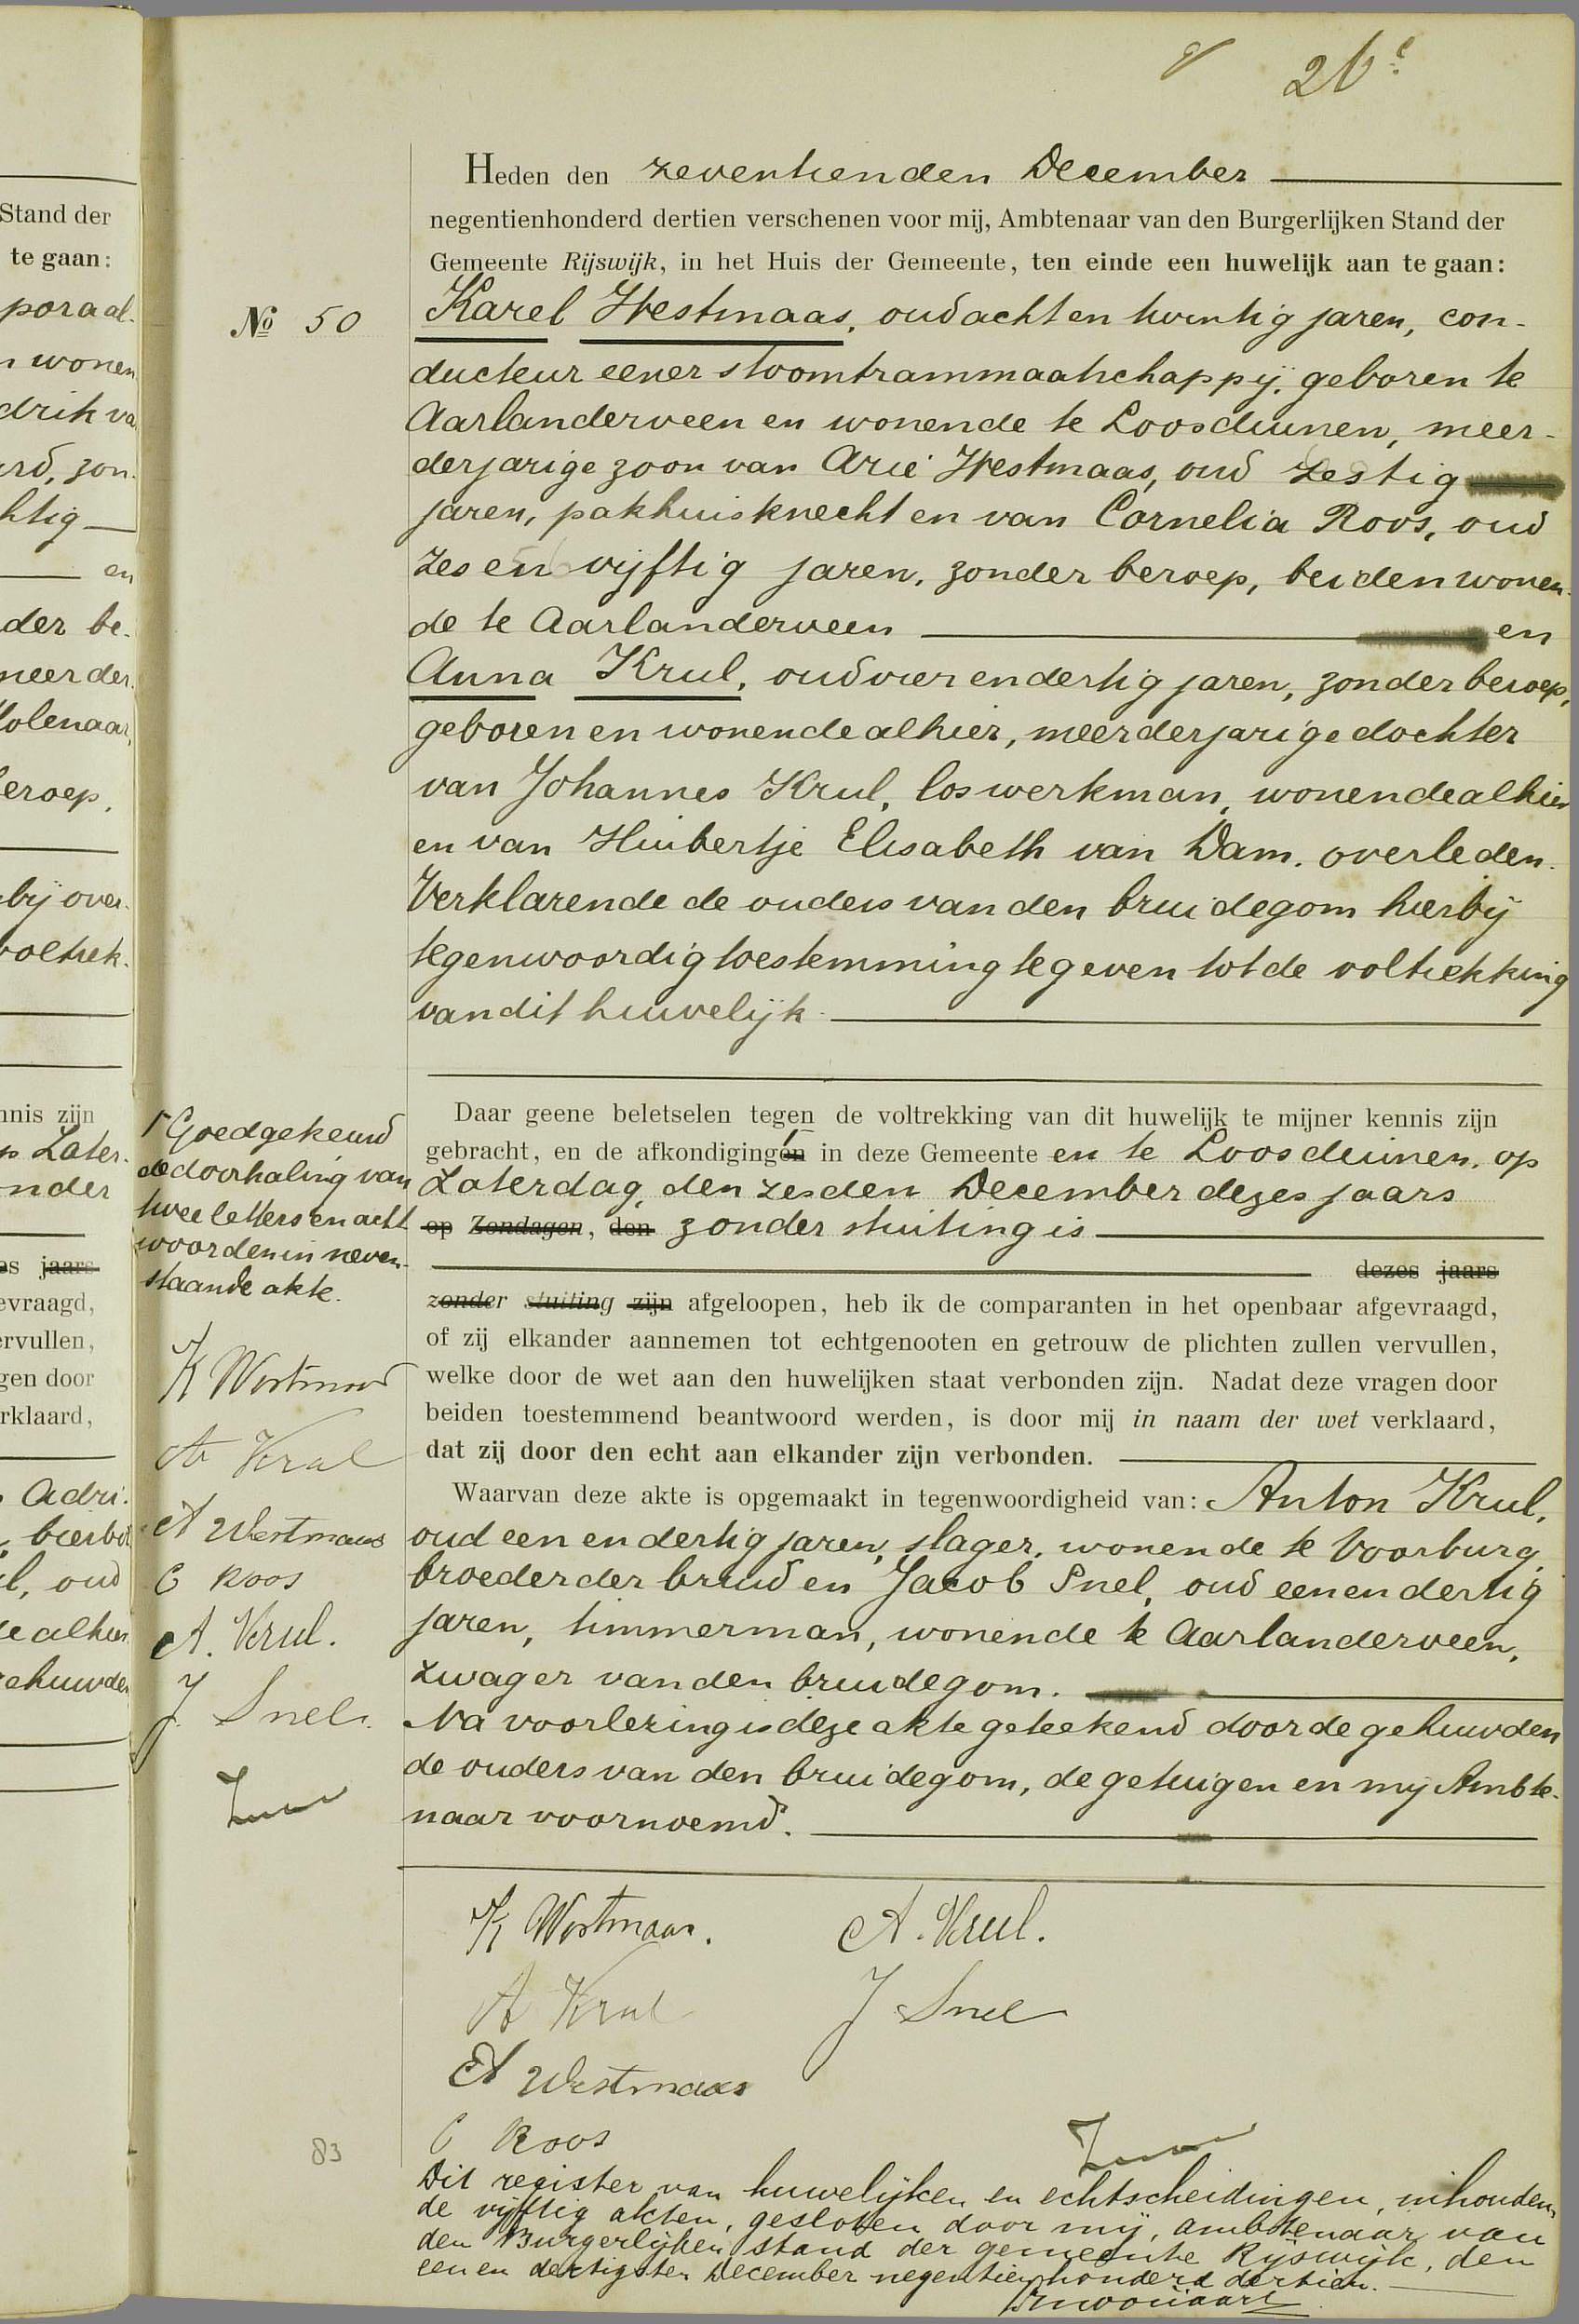 26e
Heden den zeventienden December
negentienhonderd dertien verschenen voor mij, Ambtenaar van den Burgerlijken Stand der
Gemeente Rijswijk, in het Huis der Gemeente, ten einde een huwelijk aan te gaan:
No 50
Karel Westmaas, oud acht en twintig jaren, con-
ducteur eener stoomtrammaatschappij, geboren te
Aarlanderveen en wonende te Loosduinen, meer-
derjarige zoon van Arie Westmaas, oud zestig
jaren, pakhuisknecht en van Cornelia Roos, oud
zes en vijftig jaren, zonder beroep, beiden wonen-
de te Aarlanderveen en
Anna Krul, oud vier en dertig jaren, zonder beroep,
geboren en wonende alhier, meerderjarige dochter
van Johannes Krul, los werkman, wonende alhier
en van Huibertje Elisabeth van Dam, overleden.
Verklarende de ouders van den bruidegom hierbij
tegenwoordig toestemming te geven tot de voltrekking
van dit huwelijk.
Daar geene beletselen tegen de voltrekking van dit huwelijk te mijner kennis zijn
gebracht, en de afkondigingen in deze Gemeente en te Loosduinen, op
Zaterdag, den zesden December dezes jaars
op Zondagen, den zonder stuiting is
dezes jaars
zonder stuiting zijn afgeloopen, heb ik de comparanten in het openbaar afgevraagd,
of zij elkander aannemen tot echtgenooten en getrouw de plichten zullen vervullen,
welke door de wet aan den huwelijken staat verbonden zijn. Nadat deze vragen door
beiden toestemmend beantwoord werden, is door mij in naam der wet verklaard,
dat zij door den echt aan elkander zijn verbonden.
Waarvan deze akte is opgemaakt in tegenwoordigheid van: Anton Krul,
oud een en dertig jaren, slager, wonende te Voorburg,
broeder der bruid en Jacob Snel, oud een en dertig
jaren, timmerman, wonende te Aarlanderveen,
zwager van den bruidegom.
Na voorlezing is deze akte geteekend door de gehuwden
de ouders van den bruidegom, de getuigen en mij Ambte-
naar voornoemd.
Goedgekeurd
de doorhaling van
twee letters en acht
woorden in neven-
staande akte.
K Westmaas
A Krul
A Westmaas
C Roos
A. Krul.
J Snel.
K Westmaas.
A. Krul.
A Krul
J Snel
A Westmaas
C Roos
83
Dit register van huwelijken en echtscheidingen, inhouden-
de vijftig akten, gesloten door mij, ambtenaar van
den Burgerlijken stand der gemeente Rijswijk, den
een en dertigsten December negentienhonderd dertien.
Stand der
te gaan:
poraal-
n wonen
drik va
urd, zon-
htig
en
der be-
meerder-
Molenaar,
beroep,
bij over-
voltrek-
nnis zijn
p Zater-
onder
es jaars
evraagd,
ervullen,
gen door
rklaard,
Adri-
oud
de alhier
gehuwden